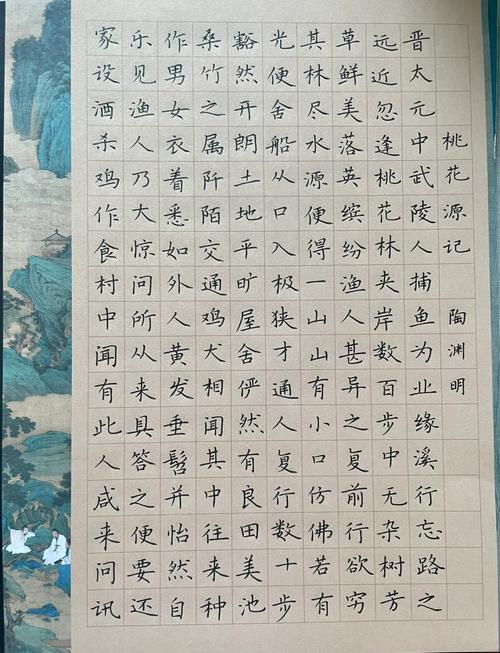 桃花源记 陶渊明
晋太元中武陵人捕鱼为业缘溪行忘路之
远近忽逢桃花林夹岸数百步中无杂树芳
草鲜美落英缤纷渔人甚异之复前行欲穷
其林尽水源便得一山山有小口仿佛若有
光便舍船从口入极狭才通人复行数十步
豁然开朗土地平旷屋舍俨然有良田美池
桑竹之属阡陌交通鸡犬相闻其中往来种
作男女衣着悉如外人黄发垂髫并怡然自
乐见渔人乃大惊问所从来具答之便要还
家设酒杀鸡作食村中闻有此人咸来问讯